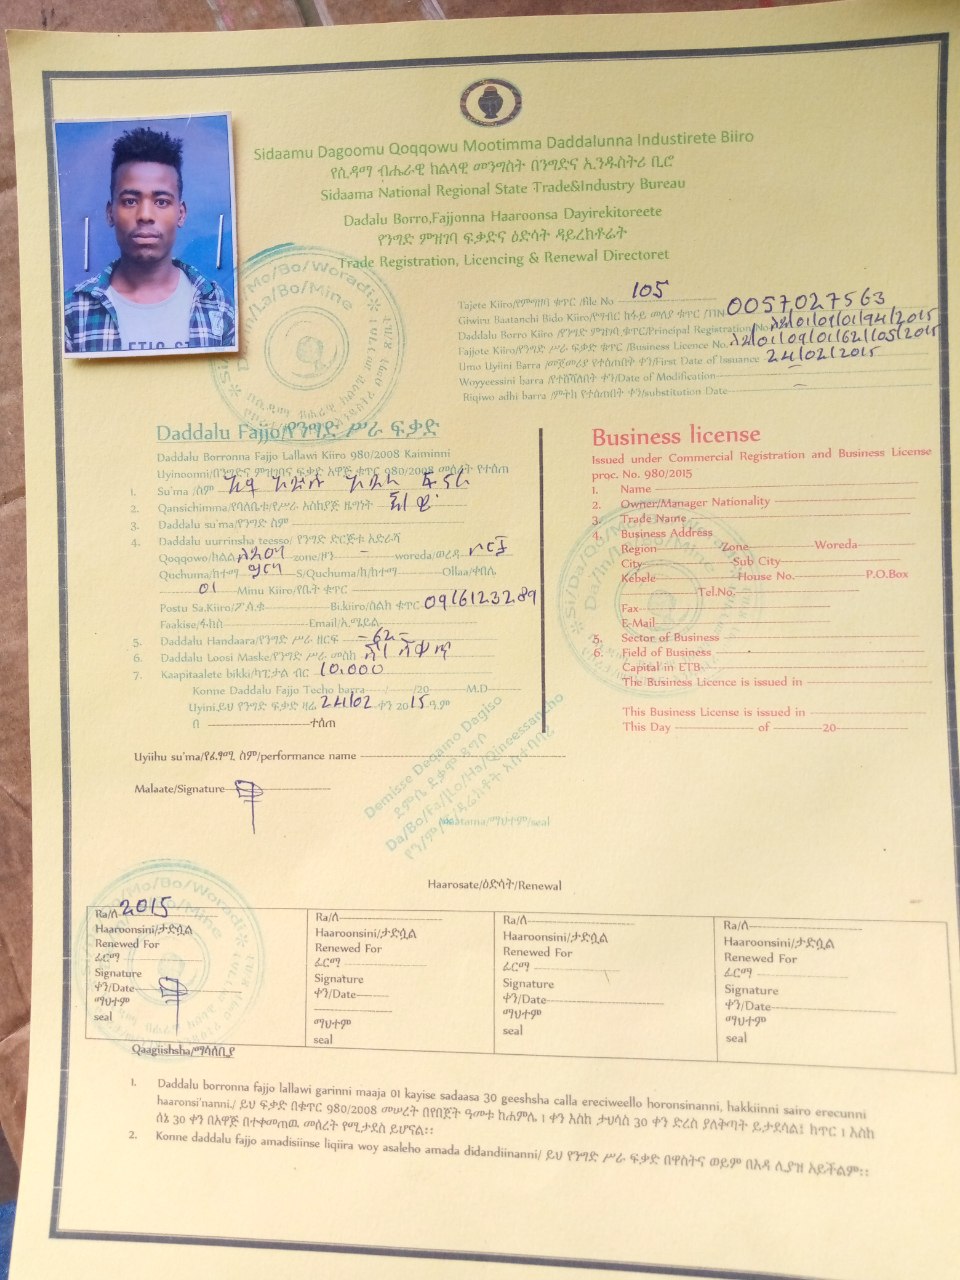 Sidaamu Dagoomu Qoqqowu Mootimma Daddalunna Industirete Biiro
የሲዳማ ብሔራዊ ክልላዊ መንግስት በንግድና ኢንዱስትሪ ቢሮ
Sidaama National Regional State Trade&Industry Bureau
Dadalu Borro,Fajjonna Haaroonsa Dayirekitoreete
የንግድ ምዝገባ ፍቃድና ዕድሳት ዳይረክቶሬት
Trade Registration, Licencing & Renewal Directoret
Tajete Kiiro/የምዝገባ ቁጥር /file No 105
Giwiru Baatanchi Bido Kiiro/የግብር ከፋይ መለያ ቁጥር /TIN 0057027563
Daddalu Borro Kiiro /የንግድ ምዝገባ ቁጥር/Principal Registration No
Fajjote Kiiro/የንግድ ሥራ ፍቃድ ቁጥር /Business Licence No.
Umo Uyiini Barra /መጀመሪያ የተሰጠበት ቀን/First Date of Issuance 24/02/2015
Woyyeessini barra /የተሻሻለበት ቀን/Date of Modification
Riqiwo adhi barra /ምትክ የተሰጠበት ቀን/substitution Date
Daddalu Fajjo/የንግድ ሥራ ፍቃድ
Daddalu Borronna Fajjo Lallawi Kiiro 980/2008 Kaiminni
Uyinoonni/በንግድና ምዝገባና ፍቃድ አዋጅ ቁጥር 980/2008 መሰረት የተሰጠ
1. Su'ma /ስም
2. Qansichimma/የባለቤቱ/የሥራ አስኪያጅ ዜግነት
3. Daddalu su'ma/የንግድ ስም
4. Daddalu uurrinsha teesso/ የንግድ ድርጅቱ አድራሻ
Qoqqowo/ክልል ሲዳማ zone/ዞን - woreda/ወረዳ
Quchuma/ከተማ S/Quchuma/ክ/ከተማ Ollaa/ቀበሌ
01 Minu Kiiro/የቤት ቁጥር
Postu Sa.Kiiro/ፖ.ሳ.ቁ Bi.kiiro/ስልክ ቁጥር 0916123289
Faakise/ፋክስ Email/ኢ.ሜይል
5. Daddalu Handaara/የንግድ ሥራ ዘርፍ
6. Daddalu Loosi Maske/የንግድ ሥራ መስክ
7. Kaapitaalete bikki/ካፒታል ብር 10.000
Konne Daddalu Fajjo Techo barra / /20 M.D
Uyini.ይህ የንግድ ፍቃድ ዛሬ 24/02 ቀን 2015 ዓ.ም
በ ተሰጠ
Business license
Issued under Commercial Registration and Business License
proc. No. 980/2015
1. Name
2. Owner/Manager Nationality
3. Trade Name
4. Business Address
Region Zone Woreda
City Sub City
Kebele House No. P.O.Box
Tel.No.
Fax
E-Mail
5. Sector of Business
6. Field of Business
Capital in ETB
The Business Licence is issued in
This Business License is issued in
This Day of 20
Uyiihu su'ma/የፈፃሚ ስም/performance name
Malaate/Signature
Demisse Deqamo Dagiso
/ማህተም/seal
Haarosate/ዕድሳት/Renewal
Ra/ለ 2015
Haaroonsini/ታድሷል
Renewed For
ፊርማ
Signature
ቀን/Date
ማህተም
seal
Ra/ለ
Haaroonsini/ታድሷል
Renewed For
ፊርማ
Signature
ቀን/Date
ማህተም
seal
Ra/ለ
Haaroonsini/ታድሷል
Renewed For
ፊርማ
Signature
ቀን/Date
ማህተም
seal
Ra/ለ
Haaroonsini/ታድሷል
Renewed For
ፊርማ
Signature
ቀን/Date
ማህተም
seal
Qaagiishsha/ማሳሰቢያ
1. Daddalu borronna fajjo lallawi garinni maaja 01 kayise sadaasa 30 geeshsha calla ereciweello horonsinanni, hakkiinni sairo erecunni
haaronsi'nanni./ ይህ ፍቃድ በቁጥር 980/2008 መሠረት በየበጀት ዓመቱ ከሐምሌ 1 ቀን እስከ ታህሳስ 30 ቀን ድረስ ያለቅጣት ይታደሳል፤ ከጥር 1 እስከ
ሰኔ 30 ቀን በአዋጅ በተቀመጠዉ መሰረት የሚታደስ ይሆናል፡፡
2. Konne daddalu fajjo amadisiinse liqiira woy asaleho amada didandiinanni/ ይህ የንግድ ሥራ ፍቃድ በዋስትና ወይም በእዳ ሊያዝ አይችልም፡፡